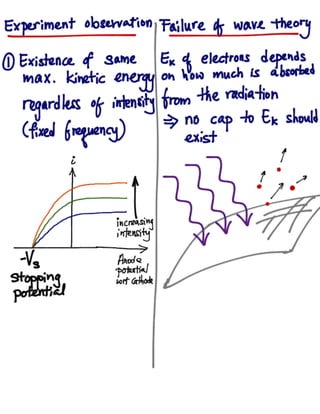 Experiment observation
① Existence of same
max. kinetic energy
regardless of intensity
(fixed frequency)
i
increasing
intensity
-Vs
stopping
potential
Anode
potential
wrt cathode
Failure of wave theory
Ek of electrons depends
on how much is absorbed
from the radiation
⇒ no cap to Ek should
exist